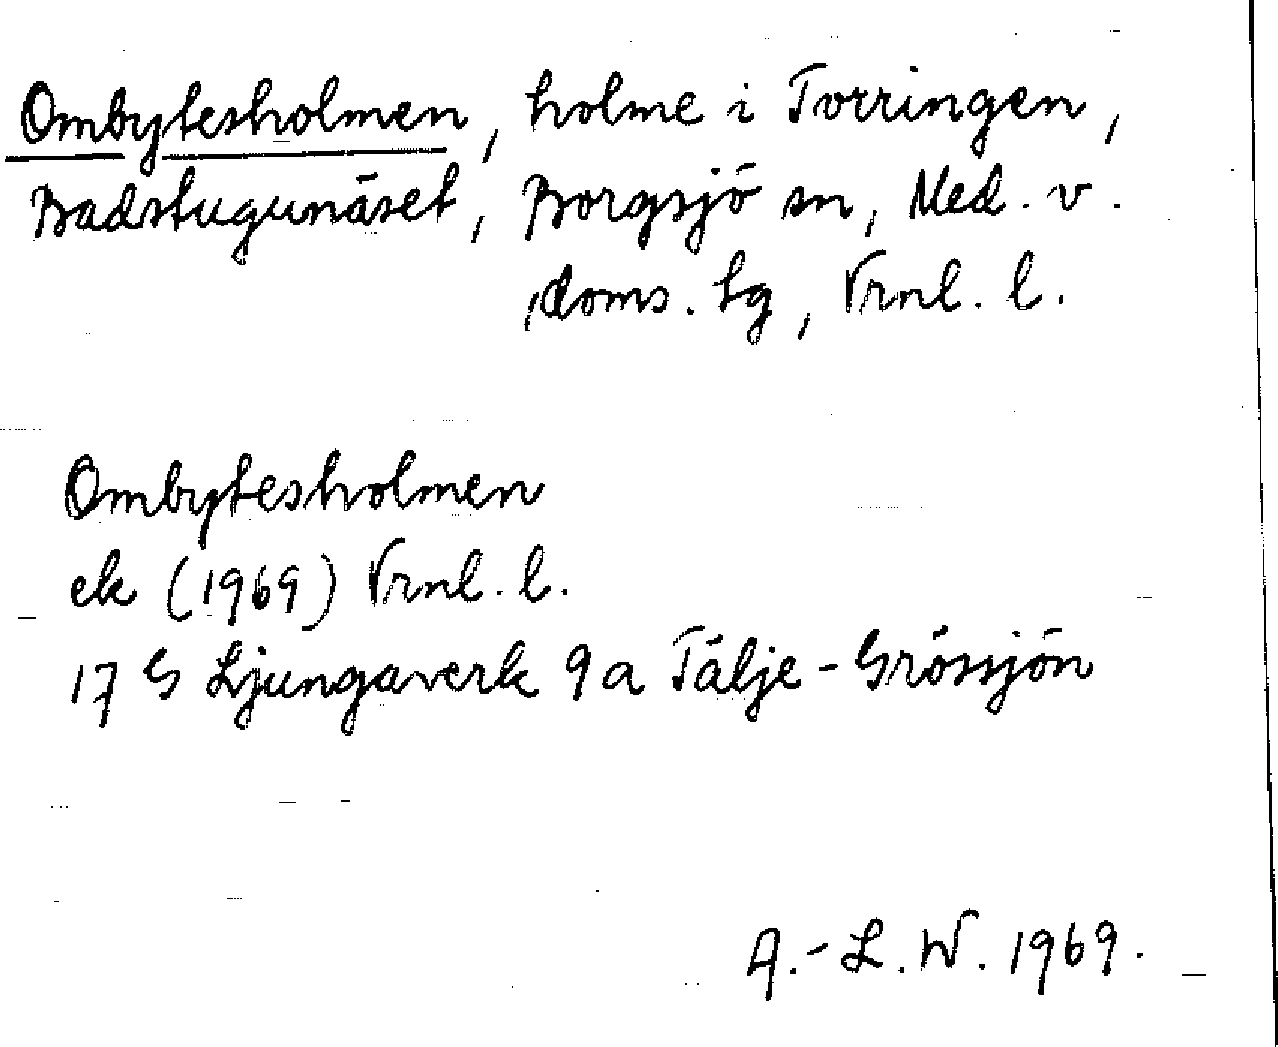 Ombytesholmen, holme i Torringen,
Badstugunäset, Borgsjö sn, Med. v.
doms. tg, Vrnl. l.
Ombytesholmen
ek (1969) Vrnl. l.
17 G Ljungaverk 9a Tälje-Grössjön
A.-L.W. 1969.